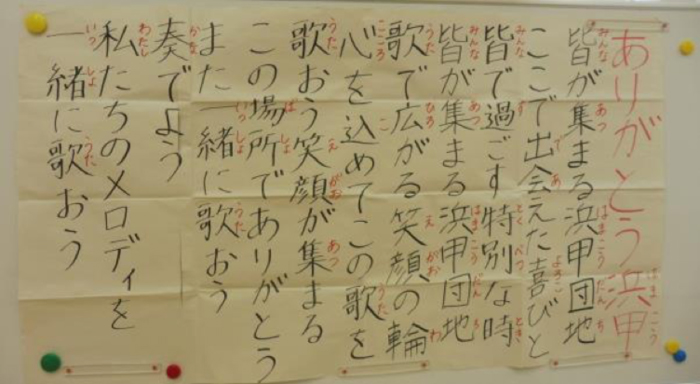 ありがとう浜甲
皆が集まる浜甲団地
ここで出会えた喜びと
皆で過ごす特別な時
皆が集まる浜甲団地
歌で広がる笑顔の輪
心を込めてこの歌を
歌おう笑顔が集まる
この場所でありがとう
また一緒に歌おう
奏でよう
私たちのメロディを
一緒に歌おう